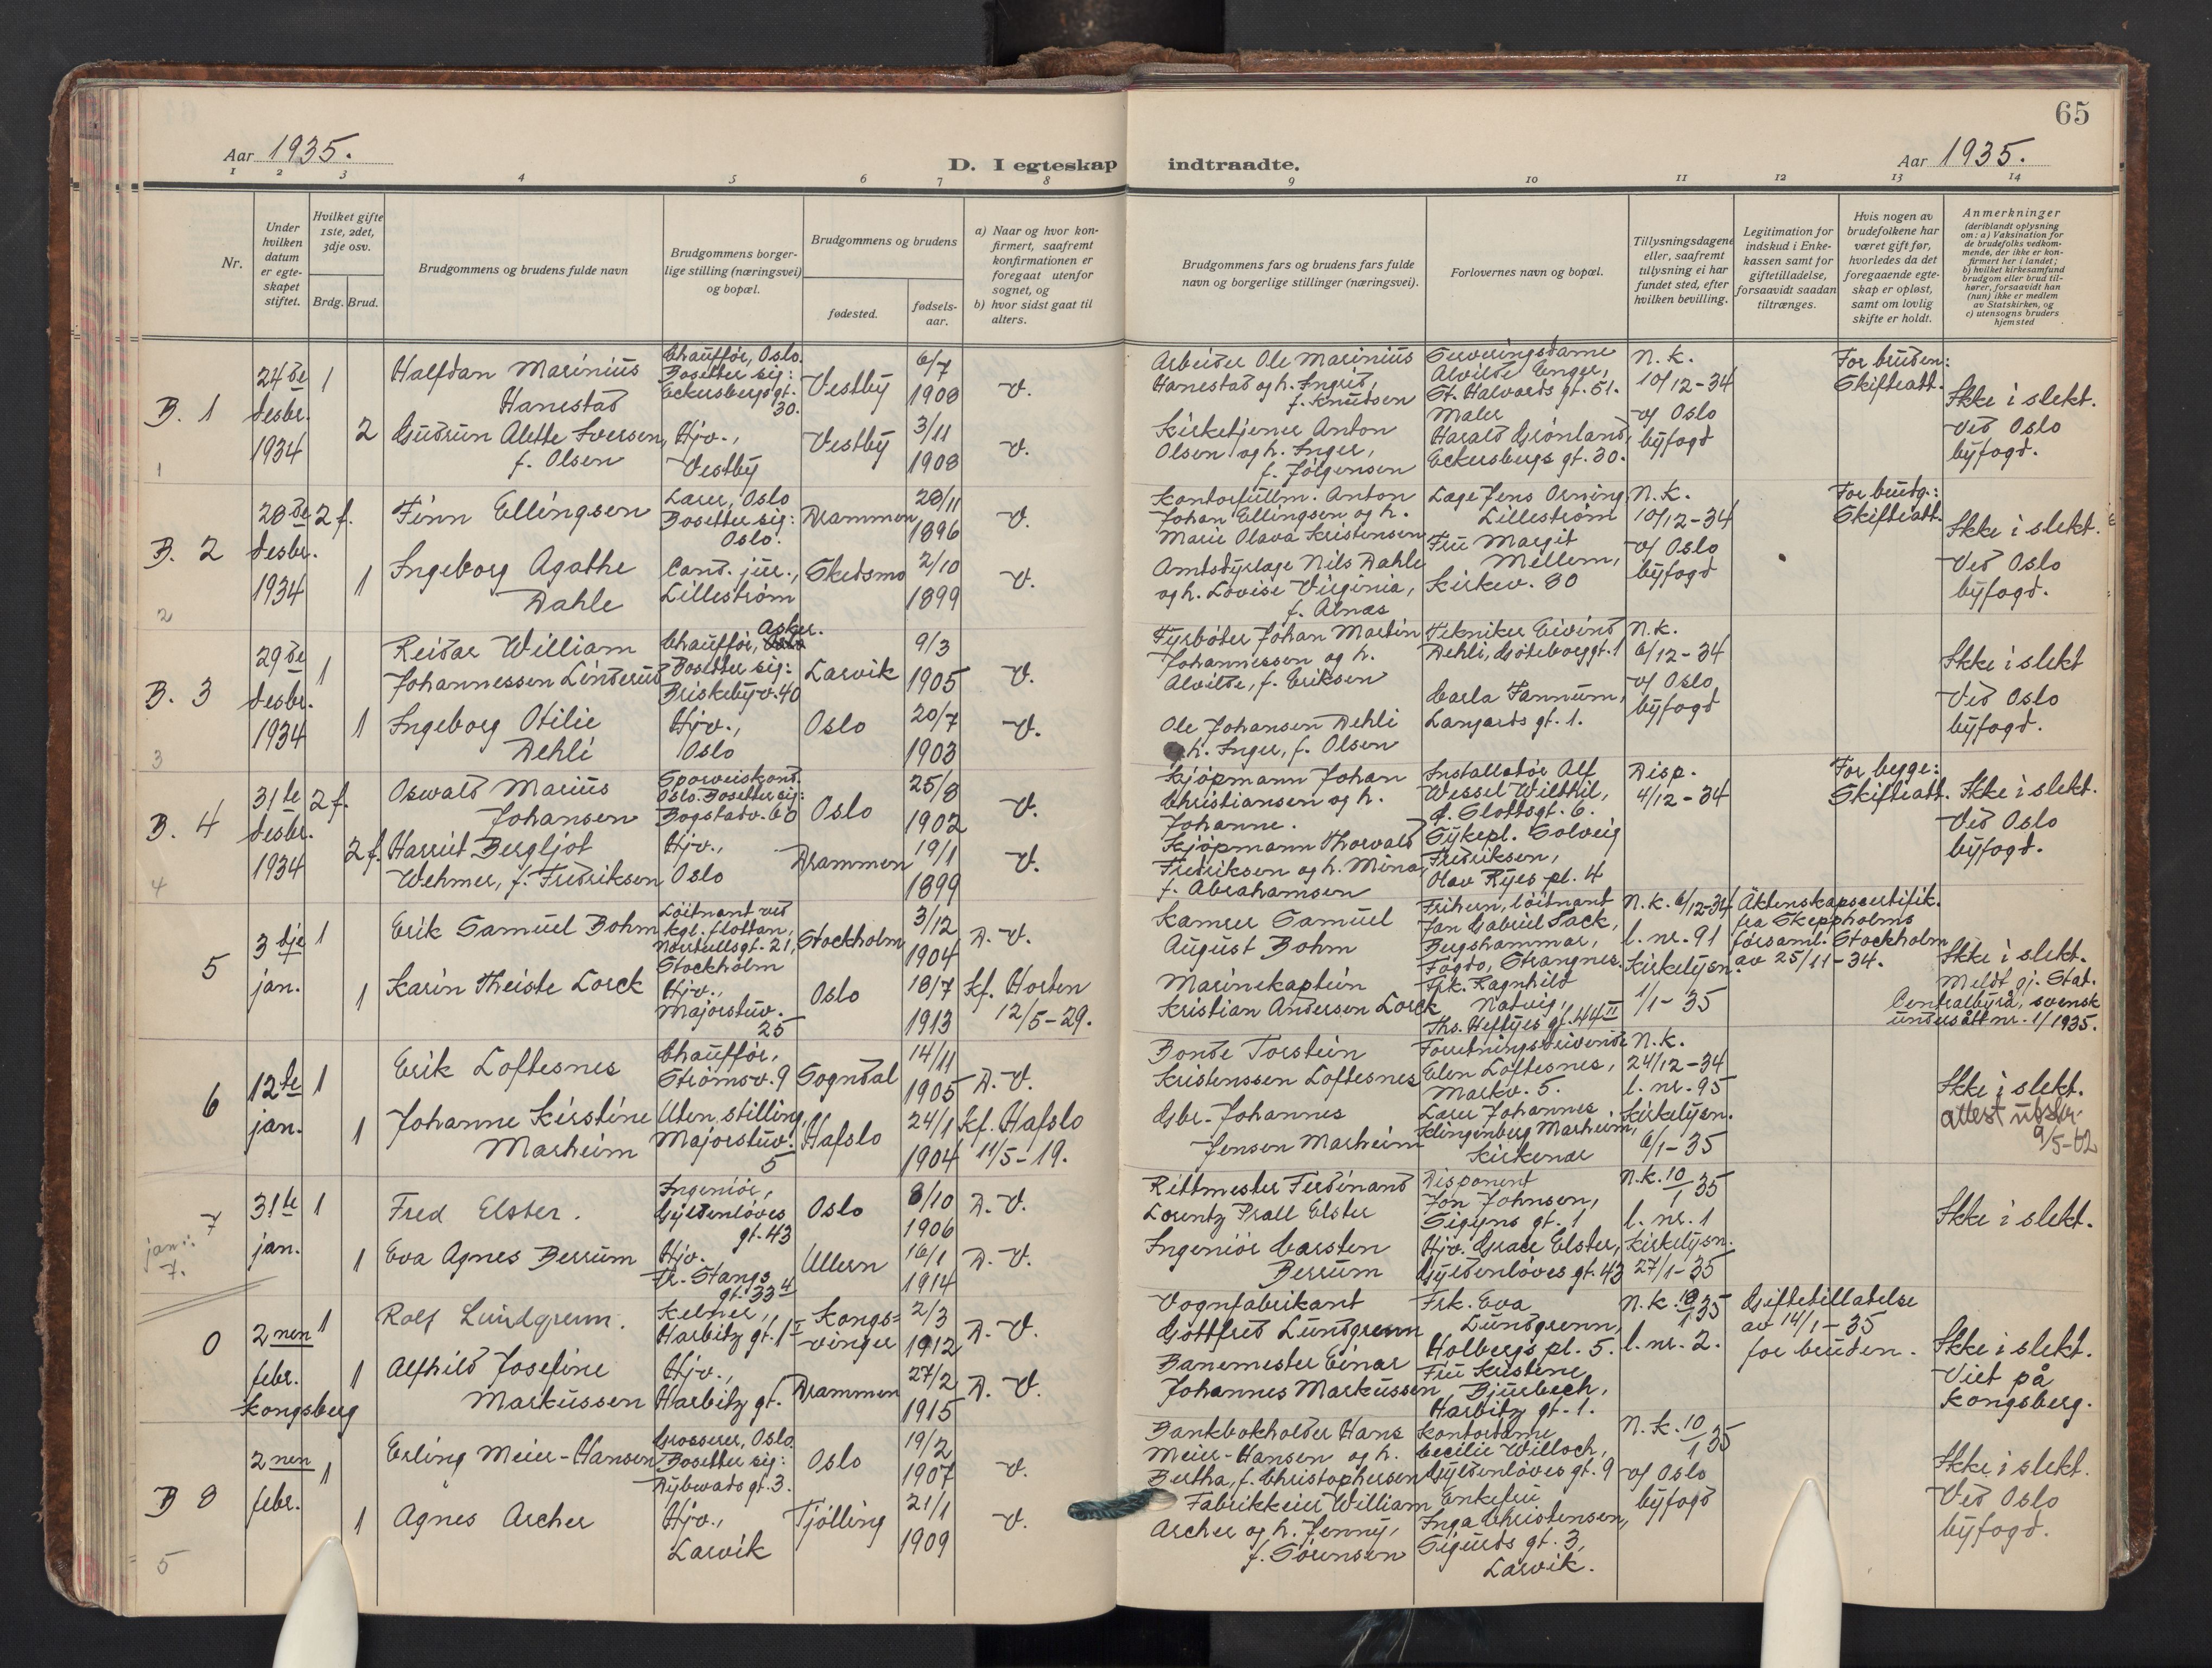 65
Aar 1935.
D. I egteskap indtraadte.
Aar 1935.
1 2 3 4 5 6 7 8 9 10 11 12 13 14
Nr.
Under hvilken datum er egteskapet stiftet.
Hvilket gifte 1ste, 2det, 3dje osv.
Brdg. Brud.
Brudgommens og brudens fulde navn
Brudgommens borgerlige stilling (næringsvei) og bopæl.
Brudgommens og brudens
fødested.
fødselsaar.
a) Naar og hvor konfirmert, saafremt konfirmationen er foregaat utenfor sognet, og
b) hvor sidst gaat til alters.
Brudgommens fars og brudens fars fulde navn og borgerlige stillinger (næringsvei).
Forlovernes navn og bopæl.
Tillysningsdagene eller, saafremt tillysning ei har fundet sted, efter hvilken bevilling.
Legitimation for indskud i Enkekassen samt for giftetilladelse, forsaavidt saadan tiltrænges.
Hvis nogen av brudefolkene har været gift før, hvorledes da det foregaaende egteskap er opløst, samt om lovlig skifte er holdt.
Anmerkninger
(deriblandt oplysning om: a) Vaksination for de brudefolks vedkommende, der ikke er konfirmert her i landet;
b) hvilket kirkesamfund brudgom eller brud tilhører, forsaavidt han (hun) ikke er medlem av Statskirken, og
c) utensogns bruders hjemsted
B. 1
1
24de desbr. 1934
1
Halfdan Marinius Hanestad
Chauffør, Oslo. Bosetter sig: Eckersbergsgt. 30.
Vestby
6/7 1908
V.
Arbeider Ole Marinius Hanestad og h. Ingrid, f. Knudsen
Serveringsdame Alvilde Enger, St. Halvards gt. 51.
N.k. 10/12-34 v/ Oslo byfogd
For bruden: Skifteatt.
Ikke i slekt. Ved Oslo byfogd.
2
Gudrun Alette Iversen, f. Olsen
Hjv., Vestby
Vestby
3/11 1908
V.
Kirketjener Anton Olsen og h. Inger, f. Jølgensen
Maler Harald Grønland, Eckersbergs gt. 30.
B. 2
2
28de desbr. 1934
2 f.
Finn Ellingsen
Lærer, Oslo Bosetter sig: Oslo.
Drammen
28/11 1896
V.
Kontorfullm. Anton Johan Ellingsen og h. Marie Olava Kristensen
Læge Jens Orning Lillestrøm
N.k. 10/12-34 v/ Oslo byfogd
For brudg.: Skifteatt.
Ikke i slekt. Ved Oslo byfogd.
1
Ingeborg Agathe Dahle
Cand. jur., Lillestrøm
Skedsmo
2/10 1899
V.
Amtsdyrlæge Nils Dahle og h. Lovise Virginia, f. Alnæs
Fru Margit Mellem, Kirkev. 80
B. 3
3
29de desbr. 1934
1
Reidar William Johannessen Linderud
Chauffør, Oslo Asker. Bosetter sig: Briskebyv. 40
Larvik
9/3 1905
V.
Fyrbøter Johan Martin Johannessen og h. Alvilde, f. Eriksen
Tekniker Eivind Dehli, Gøteborggt. 1
N.k. 6/12-34 v/ Oslo byfogd
Ikke i slekt Ved Oslo byfogd.
1
Ingeborg Otilie Dehli
Hjv., Oslo
Oslo
20/7 1903
V.
Ole Johansen Dehli og h. Inger, f. Olsen
Carla Fannum, Langards gt. 1.
B. 4
4
31te desbr. 1934
2 f.
Oswald Marius Johansen
Sporveiskond. Oslo. Bosetter sig: Bogstadv. 60
Oslo
25/8 1902
V.
Kjøpmann Johan Christiansen og h. Johanne.
Installatør Alf Wessel Wildhil, d. Slottsgt. 6.
Disp. 4/12-34
For begge: Skifteatt.
Ikke i slekt. Ved Oslo byfogd.
2 f.
Harriet Bergljot Wehmer, f. Fredriksen
Hjv., Oslo
Drammen
19/1 1899
V.
Kjøpmann Thorvald Fredriksen og h. Mina, f. Abrahamsen
Sykepl. Solveig Fredriksen, Olav Ryes pl. 4
5
3dje jan.
1
Erik Samuel Bohm
Løitnant ved kgl. flottan, Norrtullsgt. 21, Stockholm
Stockholm
3/12 1904
D. V.
Kamrer Samuel August Bohm
Friherre, löitnant Jan Gabriel Sack, Bergshammar, Fogdo, Strangnes.
N.k. 6/12-34 l. nr. 91 Kirkelysn. 1/1-35
Äktenskapscertifik. fra Skeppholms församl. Stockholm av 25/11-34.
Ikke i slekt. Meldt gj. Stat. Centralbyrå, svensk undersått nr. 1/1935.
1
Karin Theiste Lorck
Hjv., Majorstuv. 25
Oslo
18/7 1913
Kf. Horten 12/5-29.
Marinekaptein Kristian Andersen Lorck
Frk. Ragnhild Natvig, Ths. Heftyes gt. 44 II
6
12te jan.
1
Erik Loftesnes
Chauffør, Strømsv. 9
Sogndal
14/11 1905
D. V.
Bonde Torstein Kristenssen Loftesnes
Forretningsdrivende Elen Loftesnes, Markv. 5.
N.k. 24/12-34 l. nr. 95 Kirkelysn. 6/1-35
Ikke i slekt. attest utstr. 9/5-42
1
Johanne Kirstine Marheim
Uten stilling, Majorstuv. 5
Hafslo
24/1 1904
Kf. Hafslo 11/5-19.
Gbr. Johannes Jensen Marheim
Lærer Johannes Klingenberg Marheim, Kirkenær
7
jan: 7.
31te jan.
1
Fred Elster.
Ingeniør, Gyldenløves gt. 43
Oslo
8/10 1906
D. V.
Rittmester Ferdinand Lorentz Prall Elster
Disponent Jon Johnsen, Sigyns gt. 1
N.k. 10/1 35 l. nr. 1 Kirkelysn. 27/1-35
Ikke i slekt.
1
Eva Agnes Berrum
Hjv. Fr. Stangs gt. 33 4
Ullern
16/1 1914
D. V.
Ingeniør Carsten Berrum
Hjv. Grace Elster, Gyldenløves gt. 43
0
2nen febr. Kongsberg
1
Rolf Lundgrenn.
Kelner, Harbitz gt. 1 I
Kongsvinger
2/3 1912
D. V.
Vognfabrikant Gottfred Lundgrenn
Frk. Eva Lundgrenn, Holbergs pl. 5.
N.k. 18/1 35 l. nr. 2.
Giftetillatelse av 14/1-35 for bruden.
Ikke i slekt. Viet på Kongsberg.
1
Alfhild Josefine Markussen
Hjv., Harbitz gt.
Drammen
27/2 1915
D. V.
Banemester Einar Johannes Markussen
Fru Kirstine Bjurbech, Harbitz gt. 1.
B 8
5
2nen febr.
1
Erling Meier-Hansen
Grosserer, Oslo. Bosetter sig: Dybwads gt. 3.
Oslo
19/2 1907
V.
Bankbokholder Hans Meier-Hansen og h. Bertha, f. Christophersen
Kontordame Cecilie Willoch, Gyldenløves gt. 9
N.k. 10/1 35 v/ Oslo byfogd
Ikke i slekt. Ved Oslo byfogd.
1
Agnes Archer
Hjv., Larvik
Tjølling
21/1 1909
V.
Fabrikkeier William Archer og h. Jenny, f. Sørensen
Enkefru Inga Christensen, Sigurds gt. 3, Larvik.